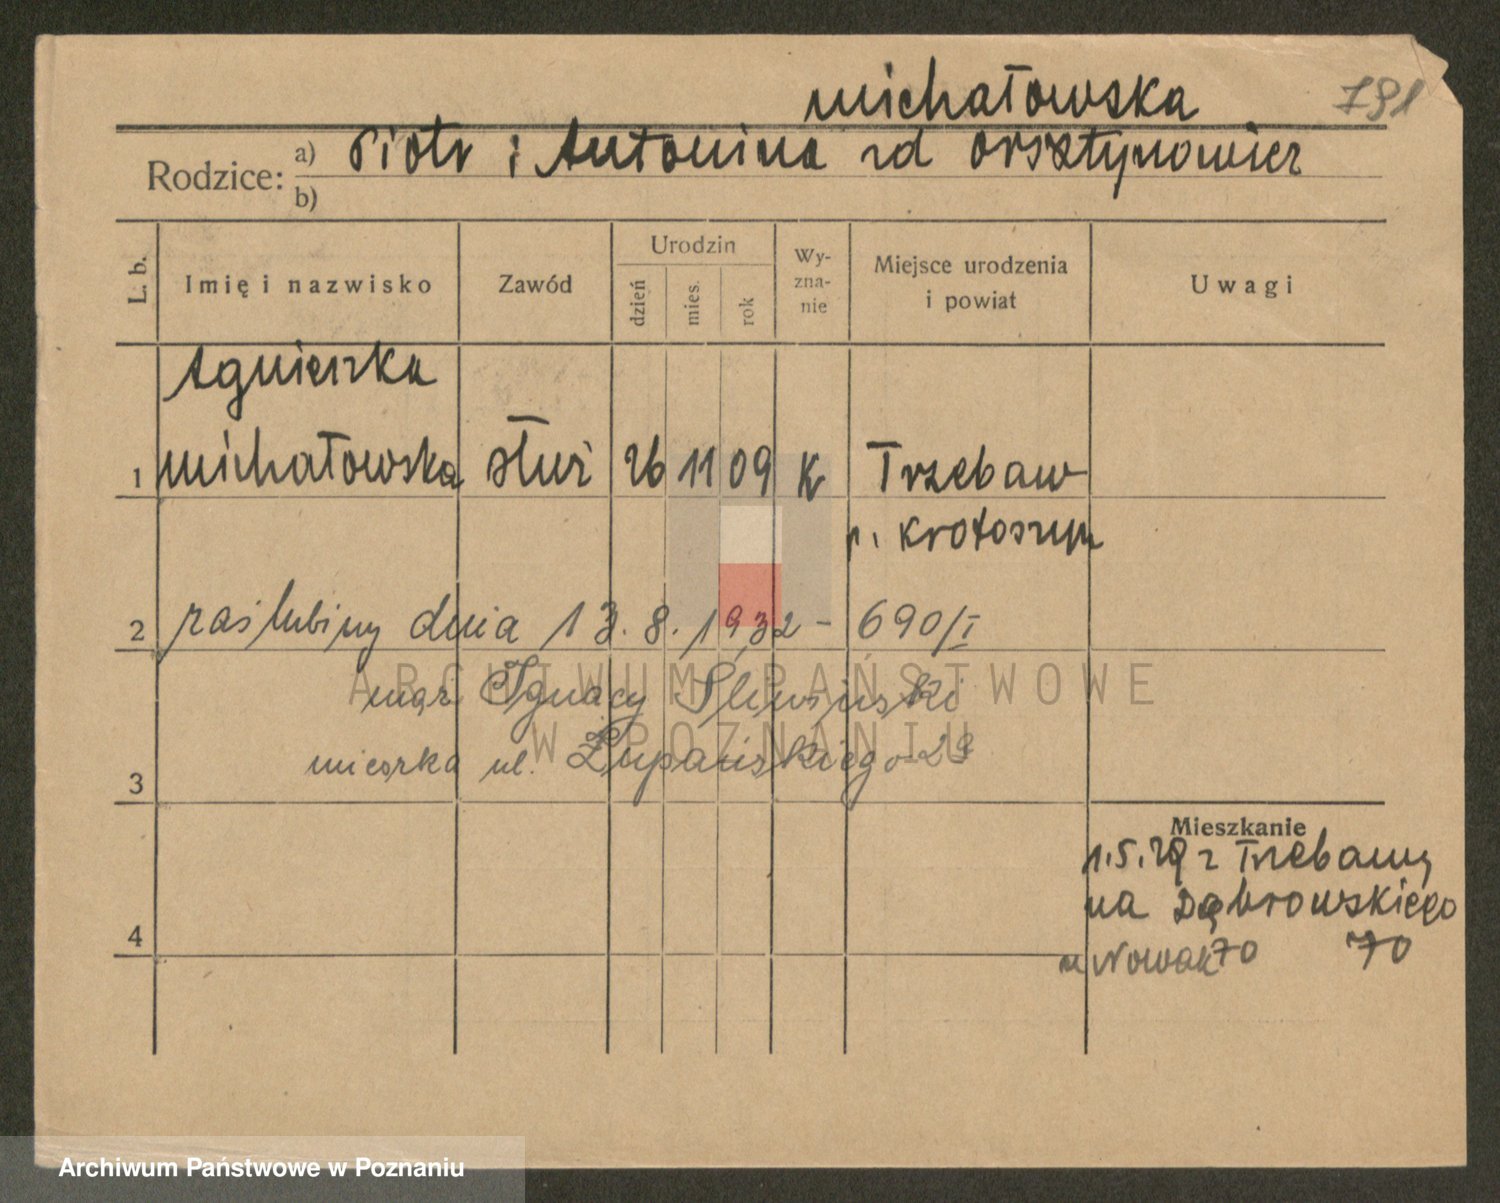 Michałowska
791
Rodzice: a) Piotr i Antonina zd Orsztynowicz
b)
L. b.
Imię i nazwisko
Zawód
Urodzin
dzień
mies.
rok
Wy-
zna-
nie
Miejsce urodzenia
i powiat
Uwagi
Agnieszka
1 Michałowska służ 26 11 09 K Trzebaw
p. Krotoszyn
2 zaślubiny dnia 13.8.1932 - 690/I
mąż Ignacy Śliwiński
mieszka ul. Żupańskiego 29
3
Mieszkanie
1.5.29 z Trzebawy
na Dąbrowskiego
4
u Nowak 70 70
ARCHIWUM PAŃSTWOWE
W POZNANIU
Archiwum Państwowe w Poznaniu